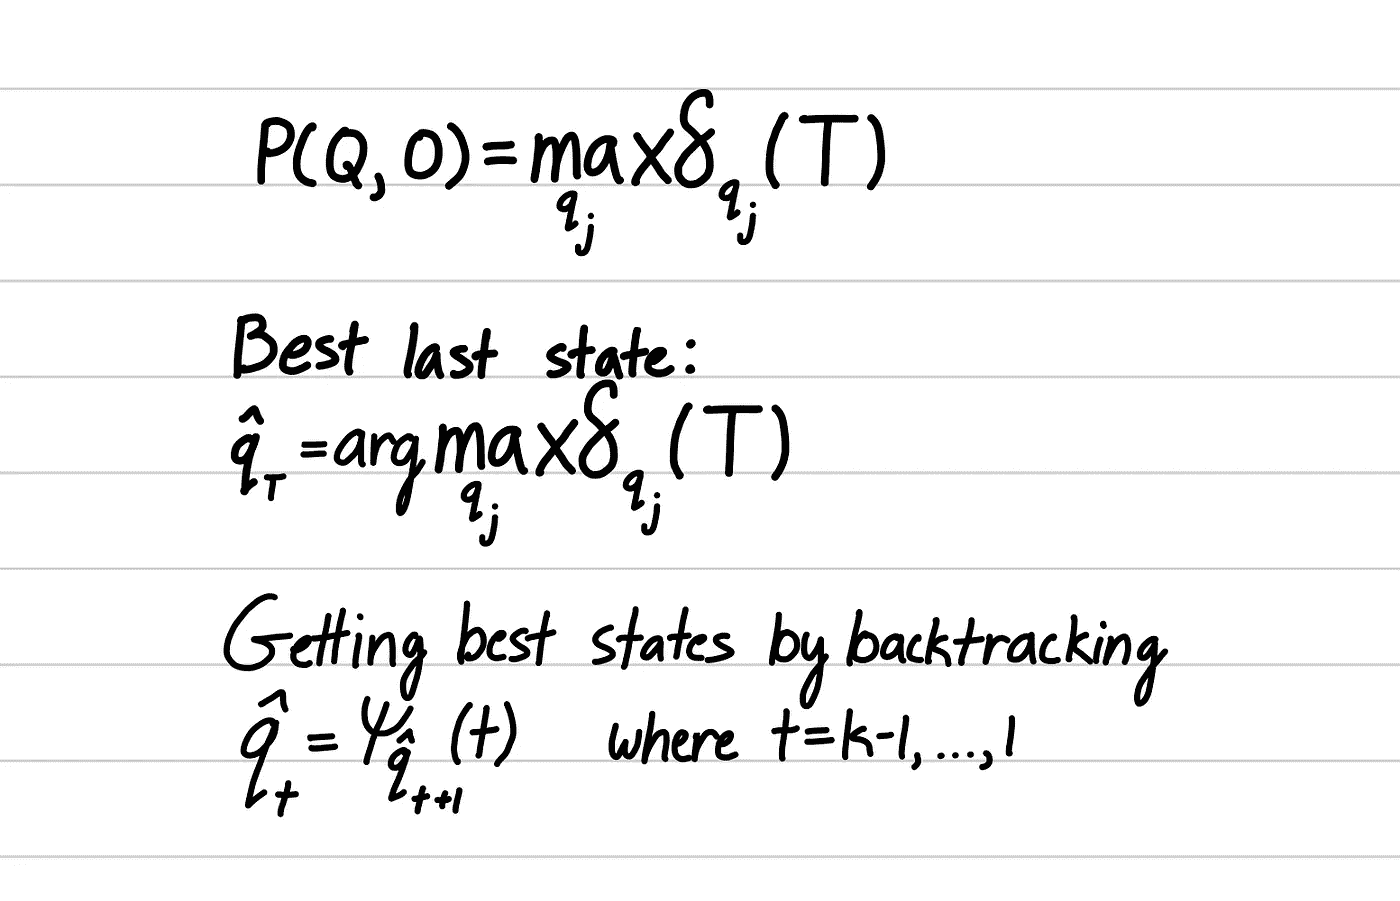 P(Q, O) = max_{q_j} δ_{q_j} (T)
Best last state:
q̂_T = arg max_{q_j} δ_{q_j} (T)
Getting best states by backtracking
q̂_t = ψ_{q̂_{t+1}} (t) where t=k-1, ..., 1